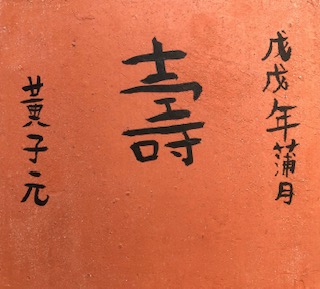 戊戌年蒲月
壽
黄子元